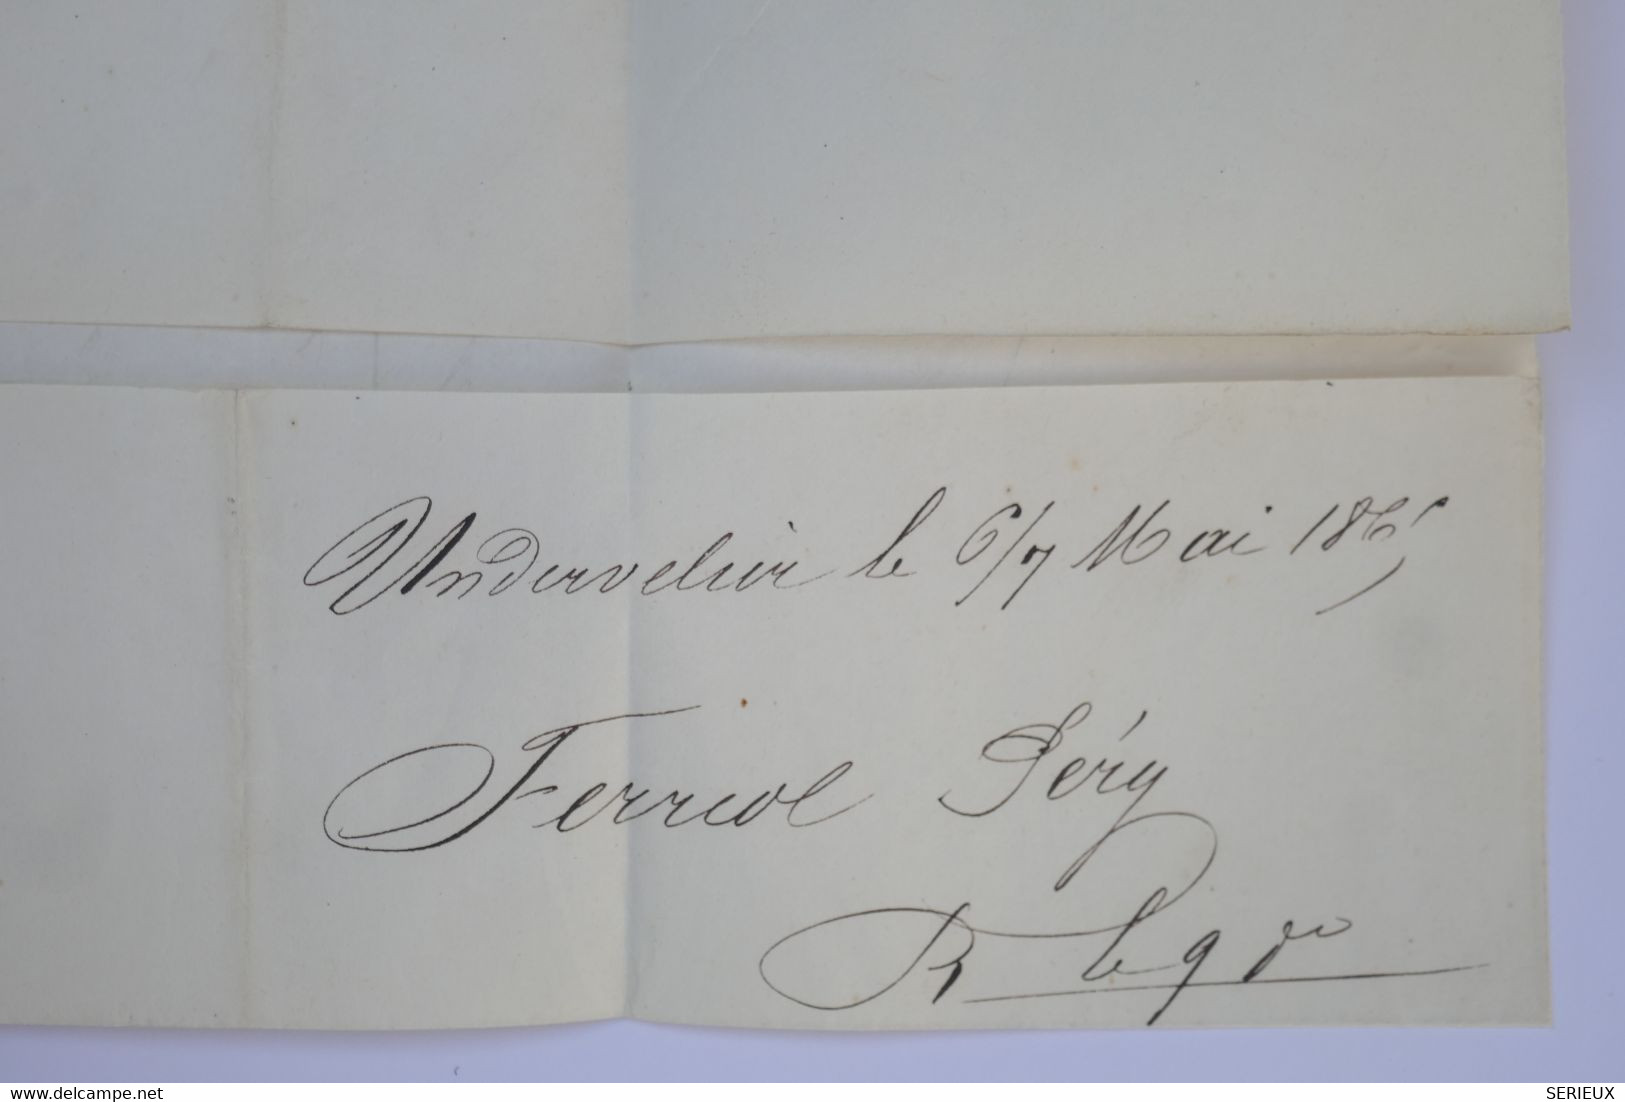 Undervelier le 6/7 Mai 1865
Ferriol Féry
R le 9 do
delcampe.net
SERIEUX